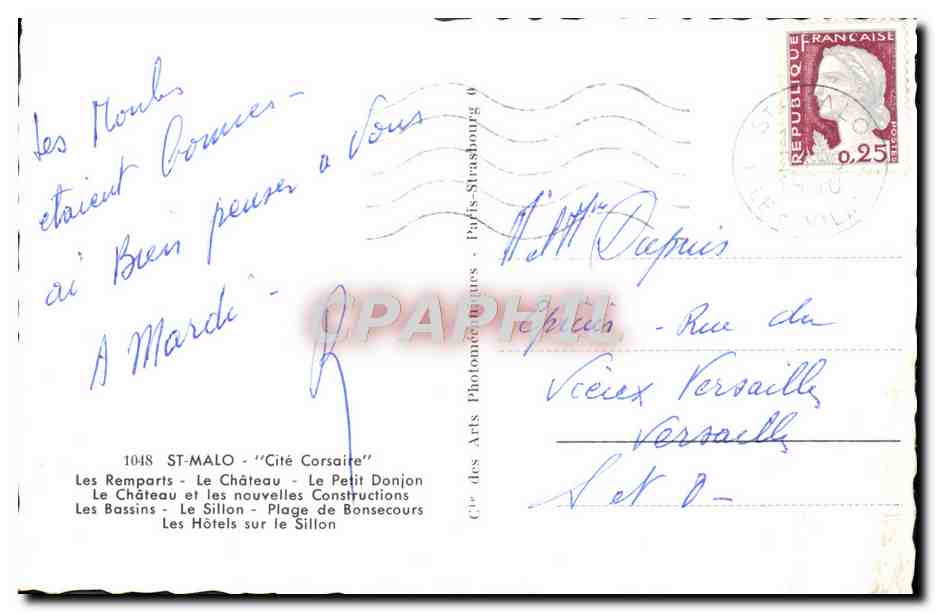 Les Moules
etaient bonnes -
ai Bien penser a Vous
A Mardi -
R
1048 ST-MALO - "Cité Corsaire"
Les Remparts - Le Château - Le Petit Donjon
Le Château et les nouvelles Constructions
Les Bassins - Le Sillon - Plage de Bonsecours
Les Hôtels sur le Sillon
Cie des Arts Photomécaniques - Paris-Strasbourg
REPUBLIQUE FRANCAISE
POSTES
0,25
ST MALO
Mr Mme Dupuis
Epiciers - Rue du
Vieux Versailles
Versailles
S et O -
CPAPHIL